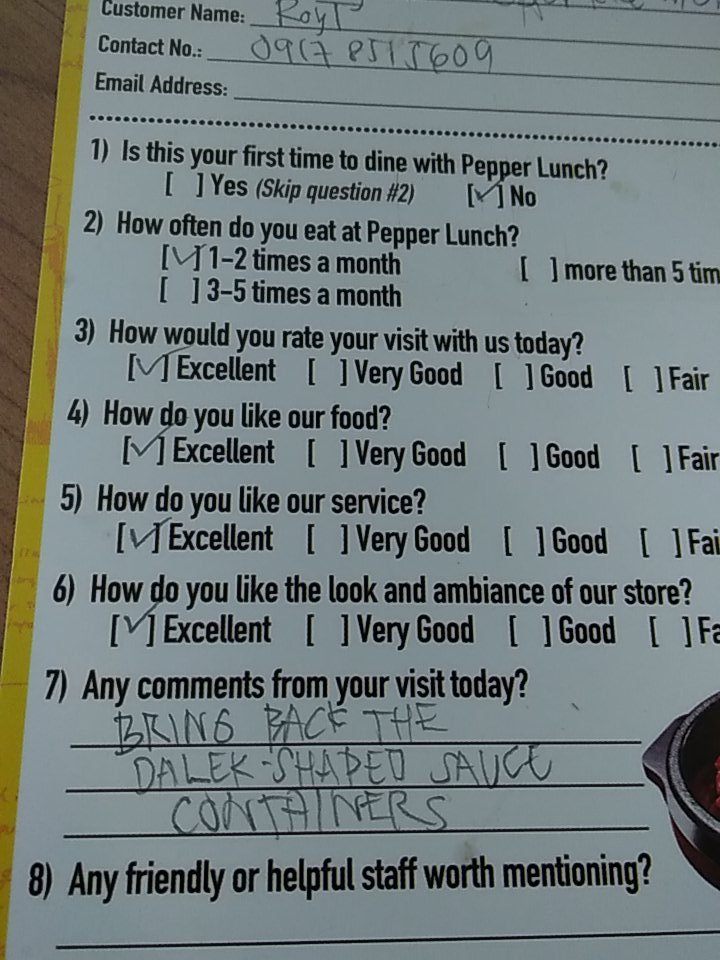 Customer Name: RoyT
Contact No.: 0917 8515609
Email Address:
1) Is this your first time to dine with Pepper Lunch?
[ ] Yes (Skip question #2) [✓] No
2) How often do you eat at Pepper Lunch?
[✓] 1-2 times a month [ ] more than 5 tim
[ ] 3-5 times a month
3) How would you rate your visit with us today?
[✓] Excellent [ ] Very Good [ ] Good [ ] Fair
4) How do you like our food?
[✓] Excellent [ ] Very Good [ ] Good [ ] Fair
5) How do you like our service?
[✓] Excellent [ ] Very Good [ ] Good [ ] Fai
6) How do you like the look and ambiance of our store?
[✓] Excellent [ ] Very Good [ ] Good [ ] Fa
7) Any comments from your visit today?
BRING BACK THE
DALEK-SHAPED SAUCE
CONTAINERS
8) Any friendly or helpful staff worth mentioning?